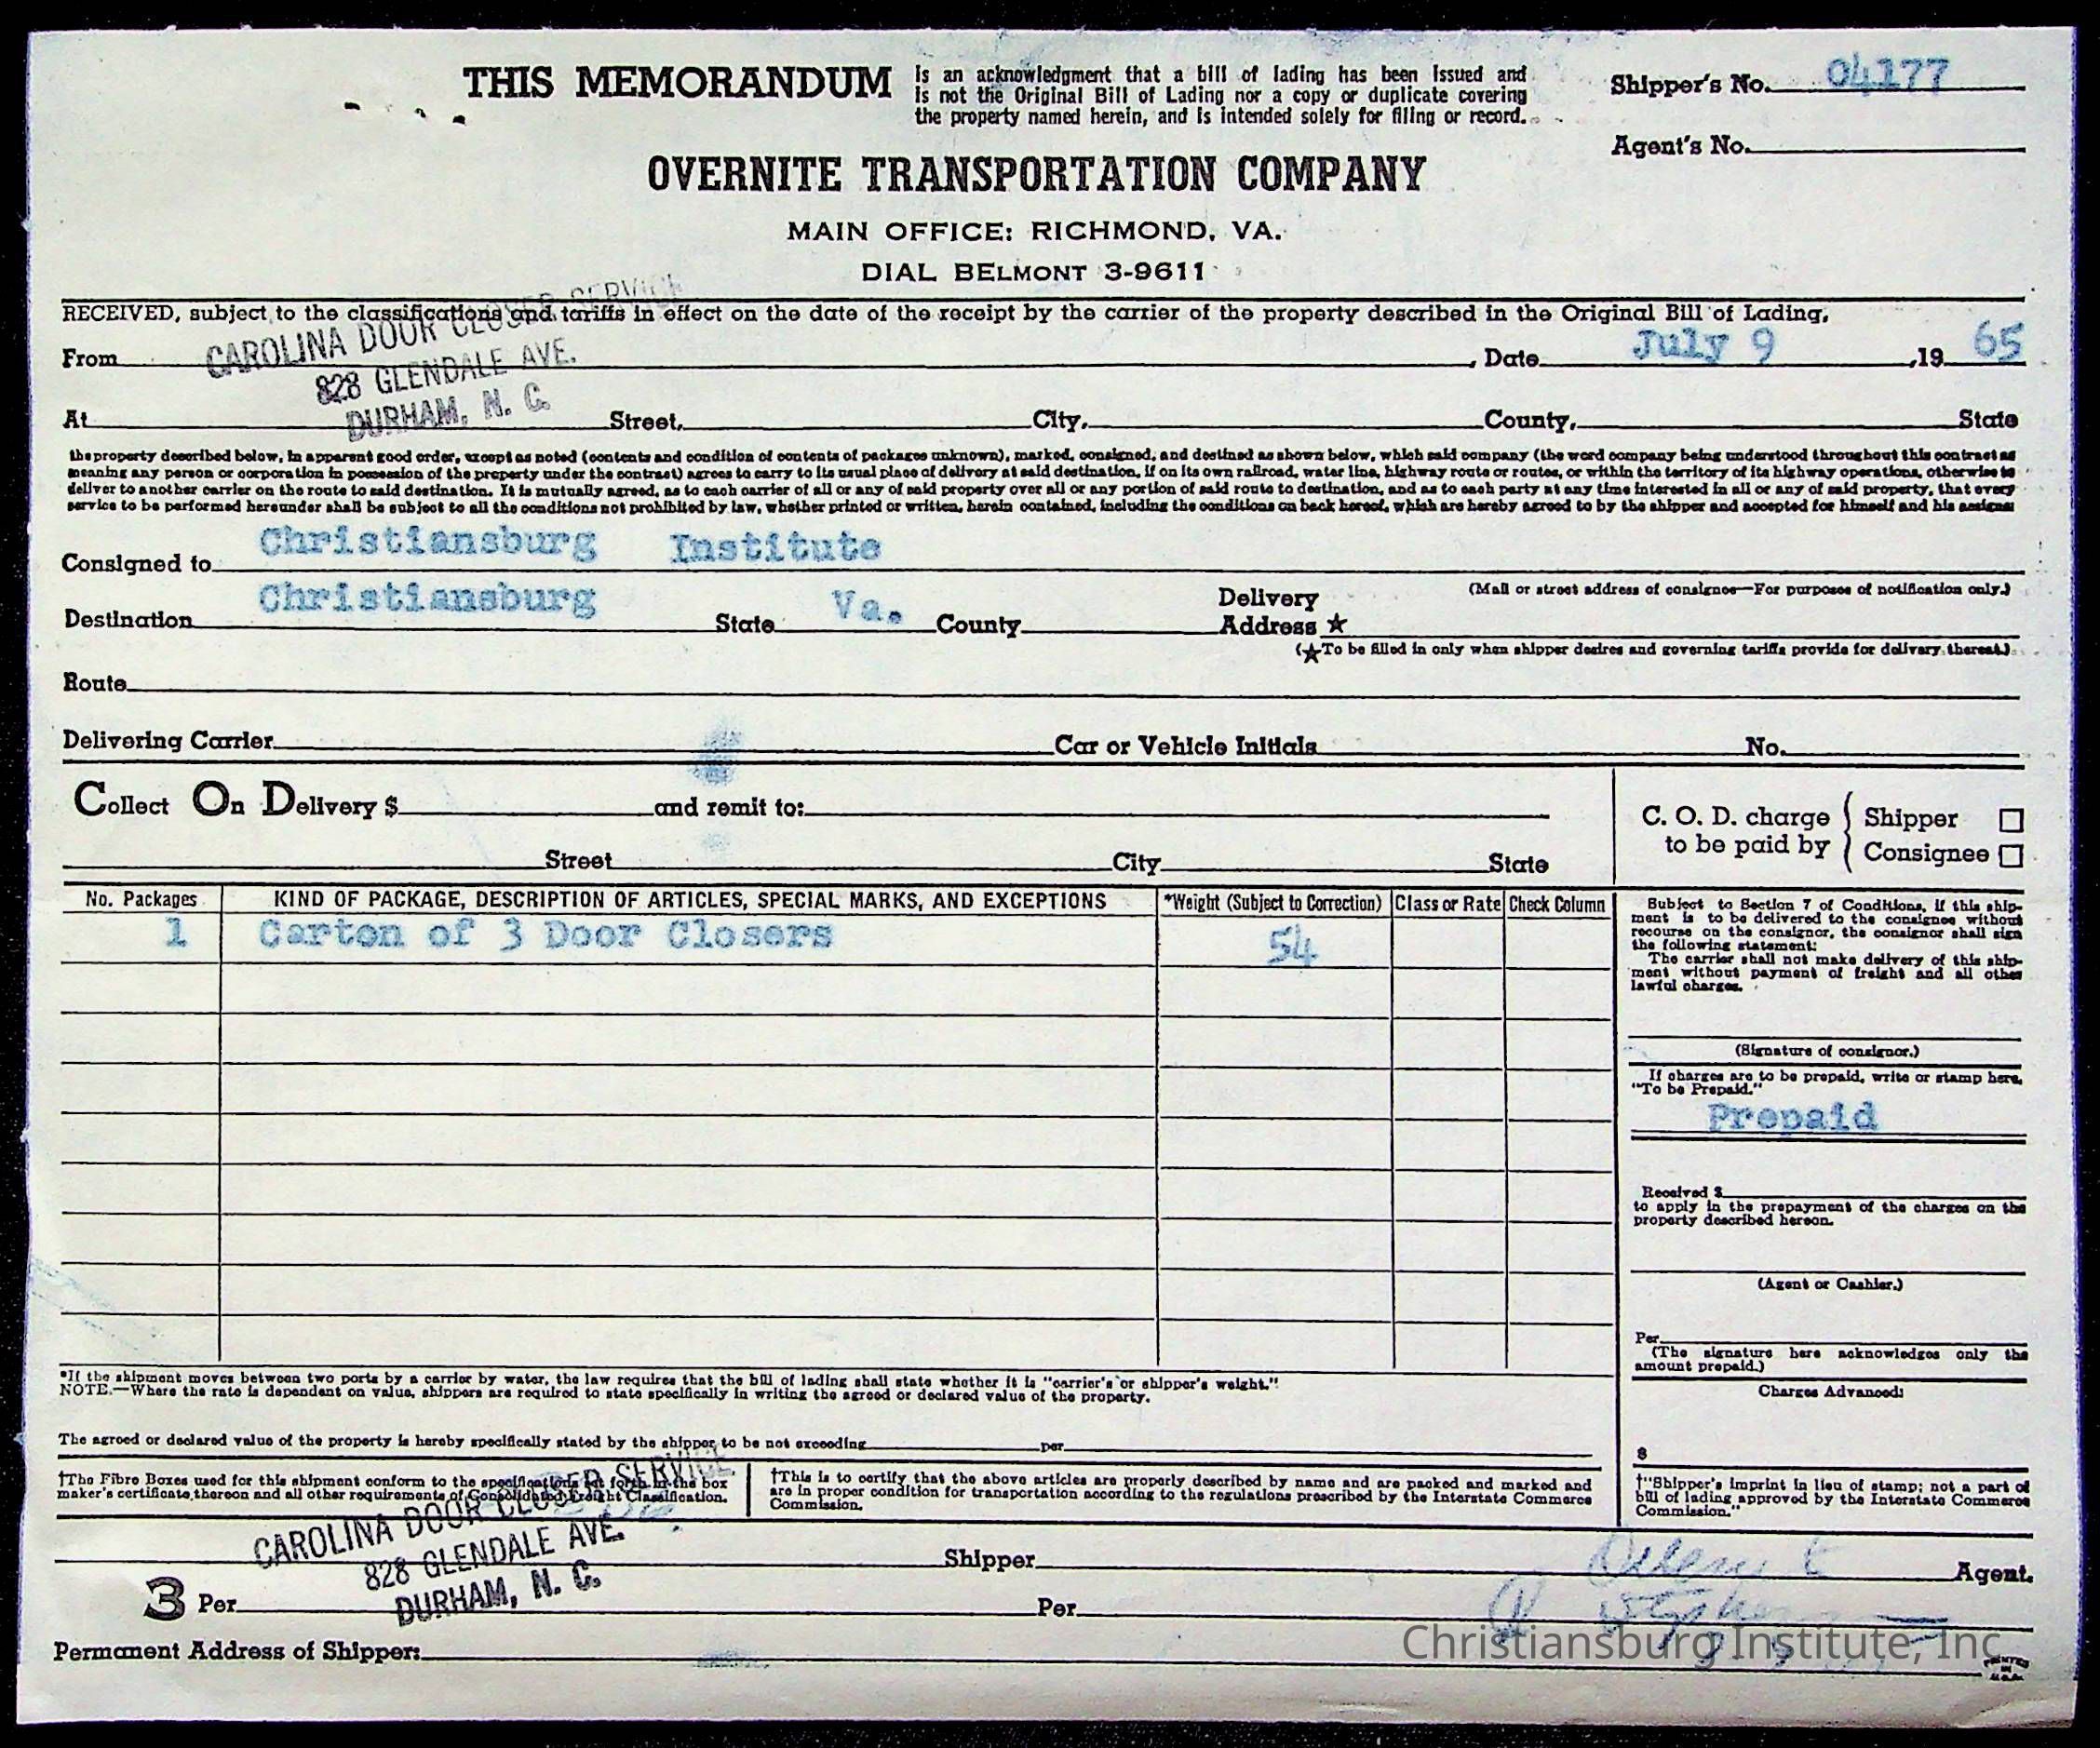 THIS MEMORANDUM
is an acknowledgment that a bill of lading has been issued and
is not the Original Bill of Lading nor a copy or duplicate covering
the property named herein, and is intended solely for filing or record.
Shipper's No. 04177
Agent's No.
OVERNITE TRANSPORTATION COMPANY
MAIN OFFICE: RICHMOND, VA.
DIAL BELMONT 3-9611
RECEIVED, subject to the classifications and tariffs in effect on the date of the receipt by the carrier of the property described in the Original Bill of Lading,
CAROLINA DOOR CLOSER SERVICE
828 GLENDALE AVE.
DURHAM, N. C.
From , Date July 9 ,19 65
At Street, City, County, State
the property described below, in apparent good order, except as noted (contents and condition of contents of packages unknown), marked, consigned, and destined as shown below, which said company (the word company being understood throughout this contract as
meaning any person or corporation in possession of the property under the contract) agrees to carry to its usual place of delivery at said destination, if on its own railroad, water line, highway route or routes, or within the territory of its highway operations, otherwise to
deliver to another carrier on the route to said destination. It is mutually agreed, as to each carrier of all or any of said property over all or any portion of said route to destination, and as to each party at any time interested in all or any of said property, that every
service to be performed hereunder shall be subject to all the conditions not prohibited by law, whether printed or written, herein contained, including the conditions on back hereof, which are hereby agreed to by the shipper and accepted for himself and his assigns
Consigned to Christiansburg Institute
(Mail or street address of consignee—For purposes of notification only.)
Destination Christiansburg State Va. County Delivery Address ★
(★To be filled in only when shipper desires and governing tariffs provide for delivery thereat.)
Route
Delivering Carrier Car or Vehicle Initials No.
Collect On Delivery $ and remit to:
Street City State
C. O. D. charge to be paid by { Shipper
Consignee
No. Packages KIND OF PACKAGE, DESCRIPTION OF ARTICLES, SPECIAL MARKS, AND EXCEPTIONS *Weight (Subject to Correction) Class or Rate Check Column
1 Carton of 3 Door Closers 54
Subject to Section 7 of Conditions, if this ship-
ment is to be delivered to the consignee without
recourse on the consignor, the consignor shall sign
the following statement:
The carrier shall not make delivery of this ship-
ment without payment of freight and all other
lawful charges.
(Signature of consignor.)
If charges are to be prepaid, write or stamp here,
"To be Prepaid."
Prepaid
Received $
to apply in the prepayment of the charges on the
property described hereon.
(Agent or Cashier.)
Per
(The signature here acknowledges only the
amount prepaid.)
Charges Advanced:
$
*If the shipment moves between two ports by a carrier by water, the law requires that the bill of lading shall state whether it is "carrier's or shipper's weight."
NOTE.—Where the rate is dependent on value, shippers are required to state specifically in writing the agreed or declared value of the property.
The agreed or declared value of the property is hereby specifically stated by the shipper to be not exceeding per
†The Fibre Boxes used for this shipment conform to the specifications set forth in the box
maker's certificate thereon and all other requirements of Consolidated Freight Classification.
†This is to certify that the above articles are properly described by name and are packed and marked and
are in proper condition for transportation according to the regulations prescribed by the Interstate Commerce
Commission.
†"Shipper's imprint in lieu of stamp; not a part of
bill of lading approved by the Interstate Commerce
Commission."
CAROLINA DOOR CLOSER SERVICE
828 GLENDALE AVE.
DURHAM, N. C.
Shipper Agent.
3 Per Per
Permanent Address of Shipper:
Christiansburg Institute, Inc
PRINTED
IN
U.S.A.